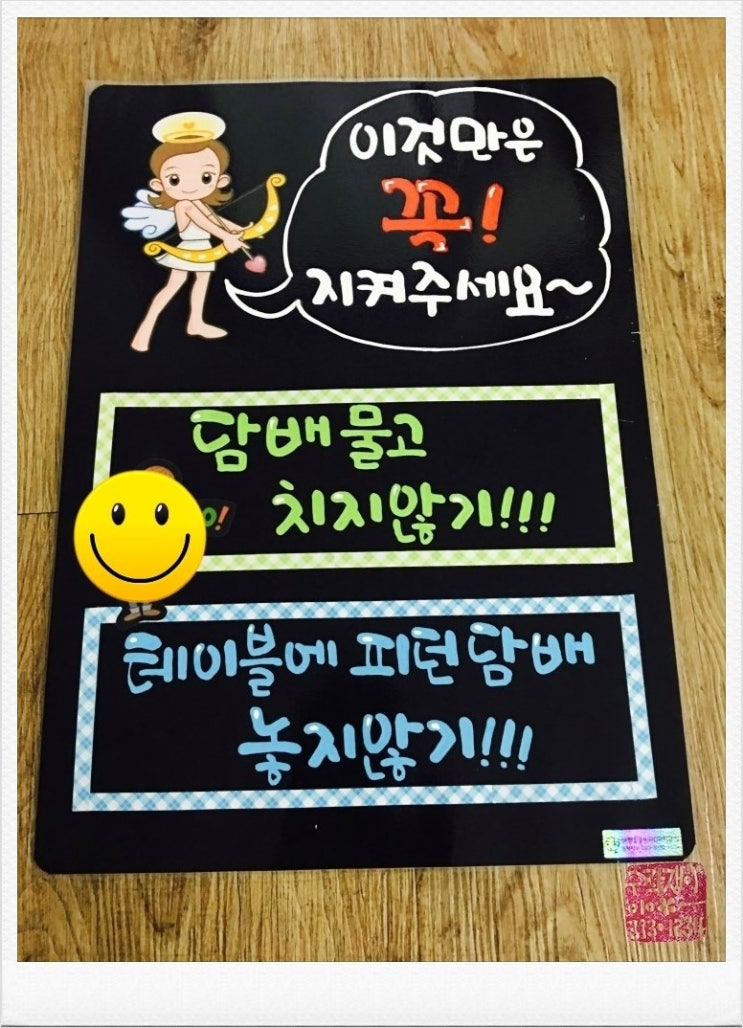 이것만은
꼭!
지켜주세요~
담배 물고
치지않기!!!
테이블에 피던 담배
놓지않기!!!